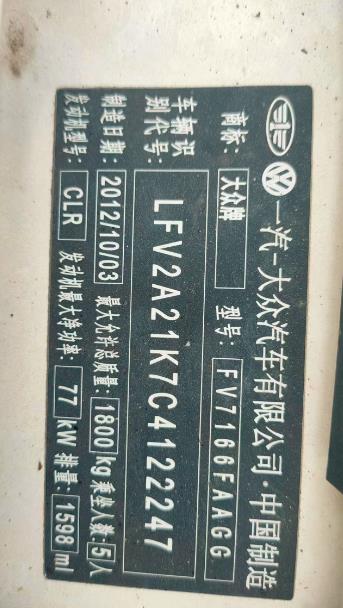 一汽-大众汽车有限公司·中国制造
商标: 大众牌 型号: FV7166FAAGG
车辆识别代号: LFV2A21K7C4122247
制造日期: 2012/10/03 最大允许总质量: 1800 kg 乘坐人数: 5人
发动机型号: CLR 发动机最大净功率: 77 kW 排量: 1598 ml